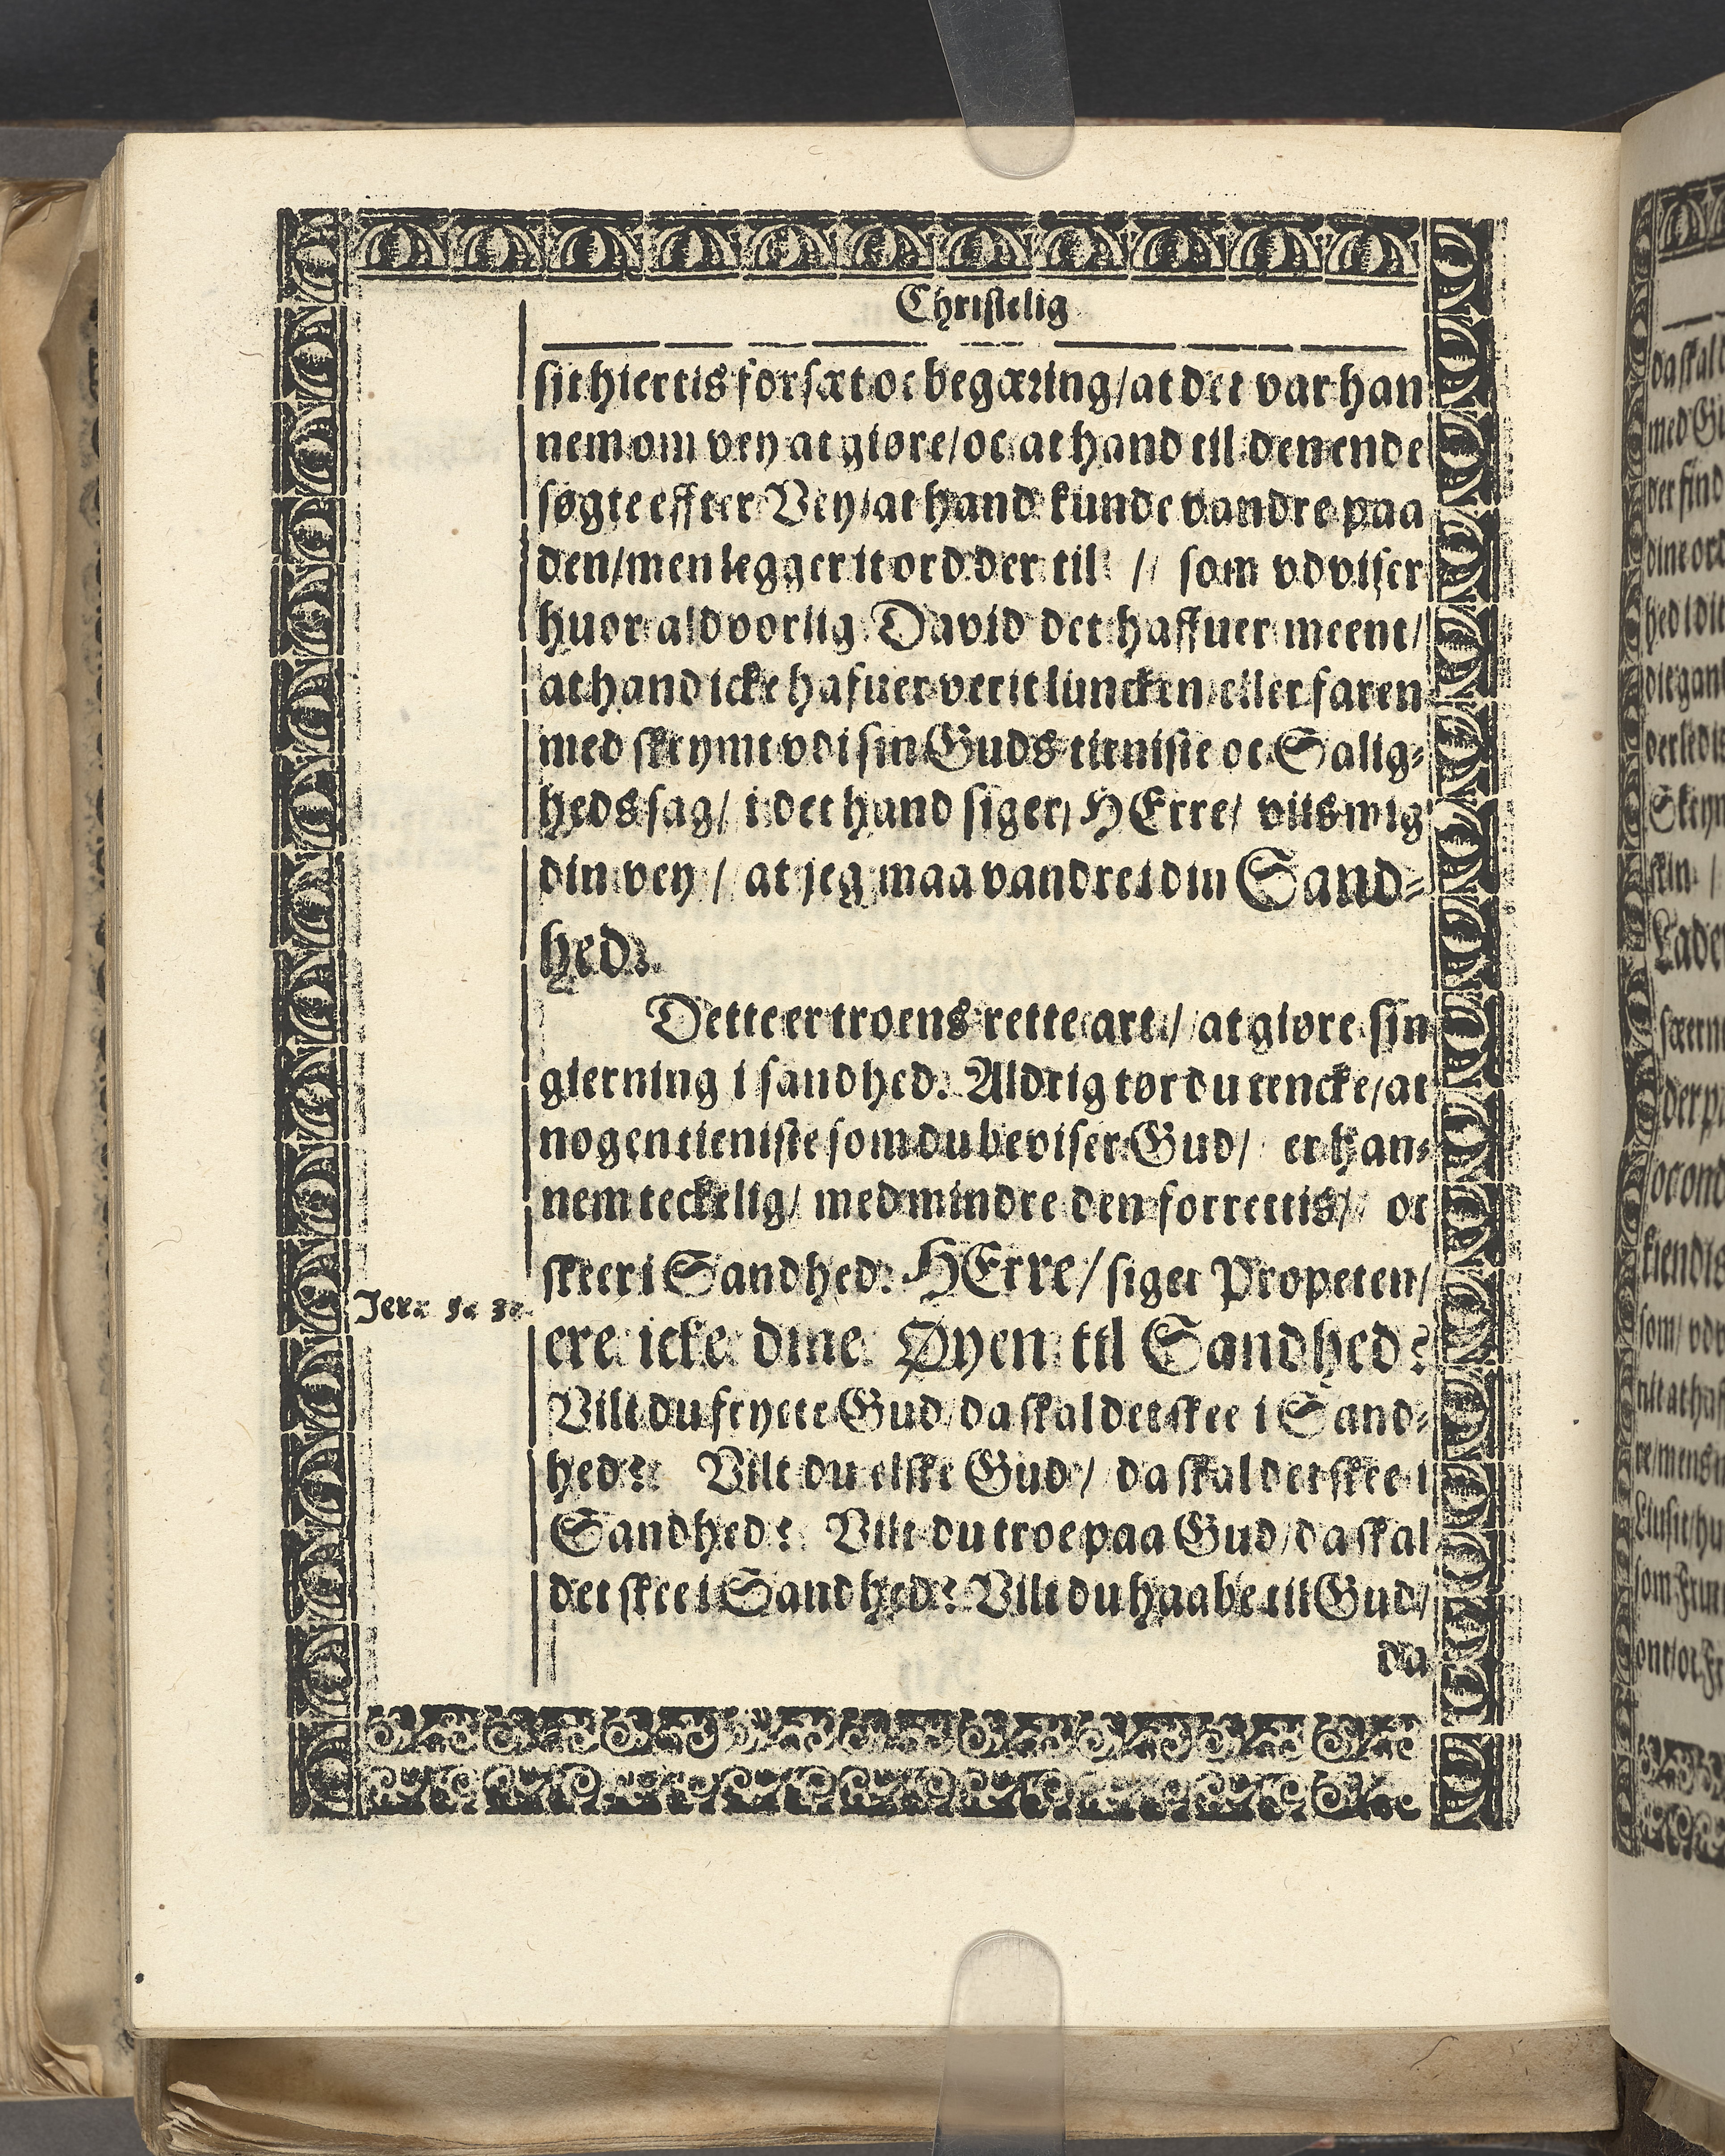 Christelig
sit hiertis forsæt oc begæring/ at det var han
nem om vey at giøre/ oc at hand til den ende
søgte effter Vey/ at hand kunde vandre paa
den/ men legger it ord der til // som vdviser
huor aldvorlig David det haffuer meent/
at hand icke hafuer verit luncken eller faren
med skrymt vdi sin Guds tieniste oc Salig-
heds sag/ i det hand siger/ HErre/ viis mig
din vey / at jeg maa vandre i din Sand-
hed.
Dette er troens rette art / at giøre sin
gierning i sandhed. Aldrig tør du tencke/ at
nogen tieniste som du beviser Gud/ er han-
nem teckelig/ med mindre den forrettis/ oc
skeer i Sandhed: HErre/ siger Propeten/
Jer. 5. 3.
ere icke dine Øyen til Sandhed?
Vilt du frycte Gud/ da skal det skee i Sand-
hed: Vilt du elske Gud/ da skal det skee i
Sandhed: Vilt du troe paa Gud/ da skal
det skee i Sandhed: Vilt du haabe til Gud/
da